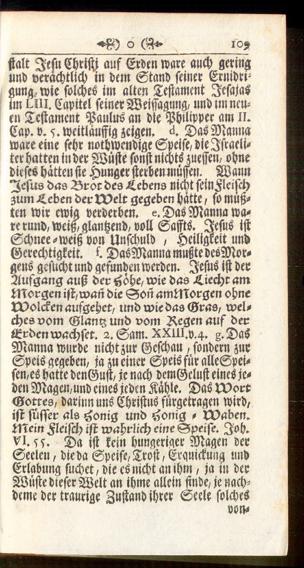 o 109
stalt Jesu Christi auf Erden ware auch gering
und verächtlich in dem Stand seiner Ernidri-
gung, wie solches im alten Testament Jesajas
im LIII. Capitel seiner Weissagung, und im neu-
en Testament Paulus an die Philipper am II.
Cap. v. 5. weitläuffig zeigen. d. Das Manna
ware eine sehr nothwendige Speise, die Israeli-
ter hatten in der Wüste sonst nichts zuessen, ohne
dieses hätten sie Hunger sterben müssen. Wann
Jesus das Brot des Lebens nicht sein Fleisch
zum Leben der Welt gegeben hätte, so müß-
ten wir ewig verderben. e. Das Manna wa-
re rund, weiß, glantzend, voll Saffts. Jesus ist
Schnee-weiß von Unschuld, Heiligkeit und
Gerechtigkeit. f. Das Manna mußte des Mor-
gens gesucht und gefunden werden. Jesus ist der
Aufgang auß der Höhe, wie das Liecht am
Morgen ist, wañ die Soñ am Morgen ohne
Wolcken aufgehet, und wie das Gras, wel-
ches vom Glantz und vom Regen auf der
Erden wachset. 2. Sam. XXIII. v. 4. g. Das
Manna wurde nicht zur Geschau, sondern zur
Speis gegeben, ja zu einer Speis für alle Spei-
sen, es hatte den Gust, je nach dem Gelust eines je-
den Magen, und eines jeden Kähle. Das Wort
Gottes, dariñ uns Christus fürgetragen wird,
ist süsser als Honig und Honig-Waben.
Mein Fleisch ist wahrlich eine Speise. Joh.
VI. 55. Da ist kein hungeriger Magen der
Seelen, die da Speise, Trost, Erquickung und
Erlabung suchet, die es nicht an ihm, ja in der
Wüste dieser Welt an ihme allein finde, je nach-
deme der traurige Zustand ihrer Seele solches
von-